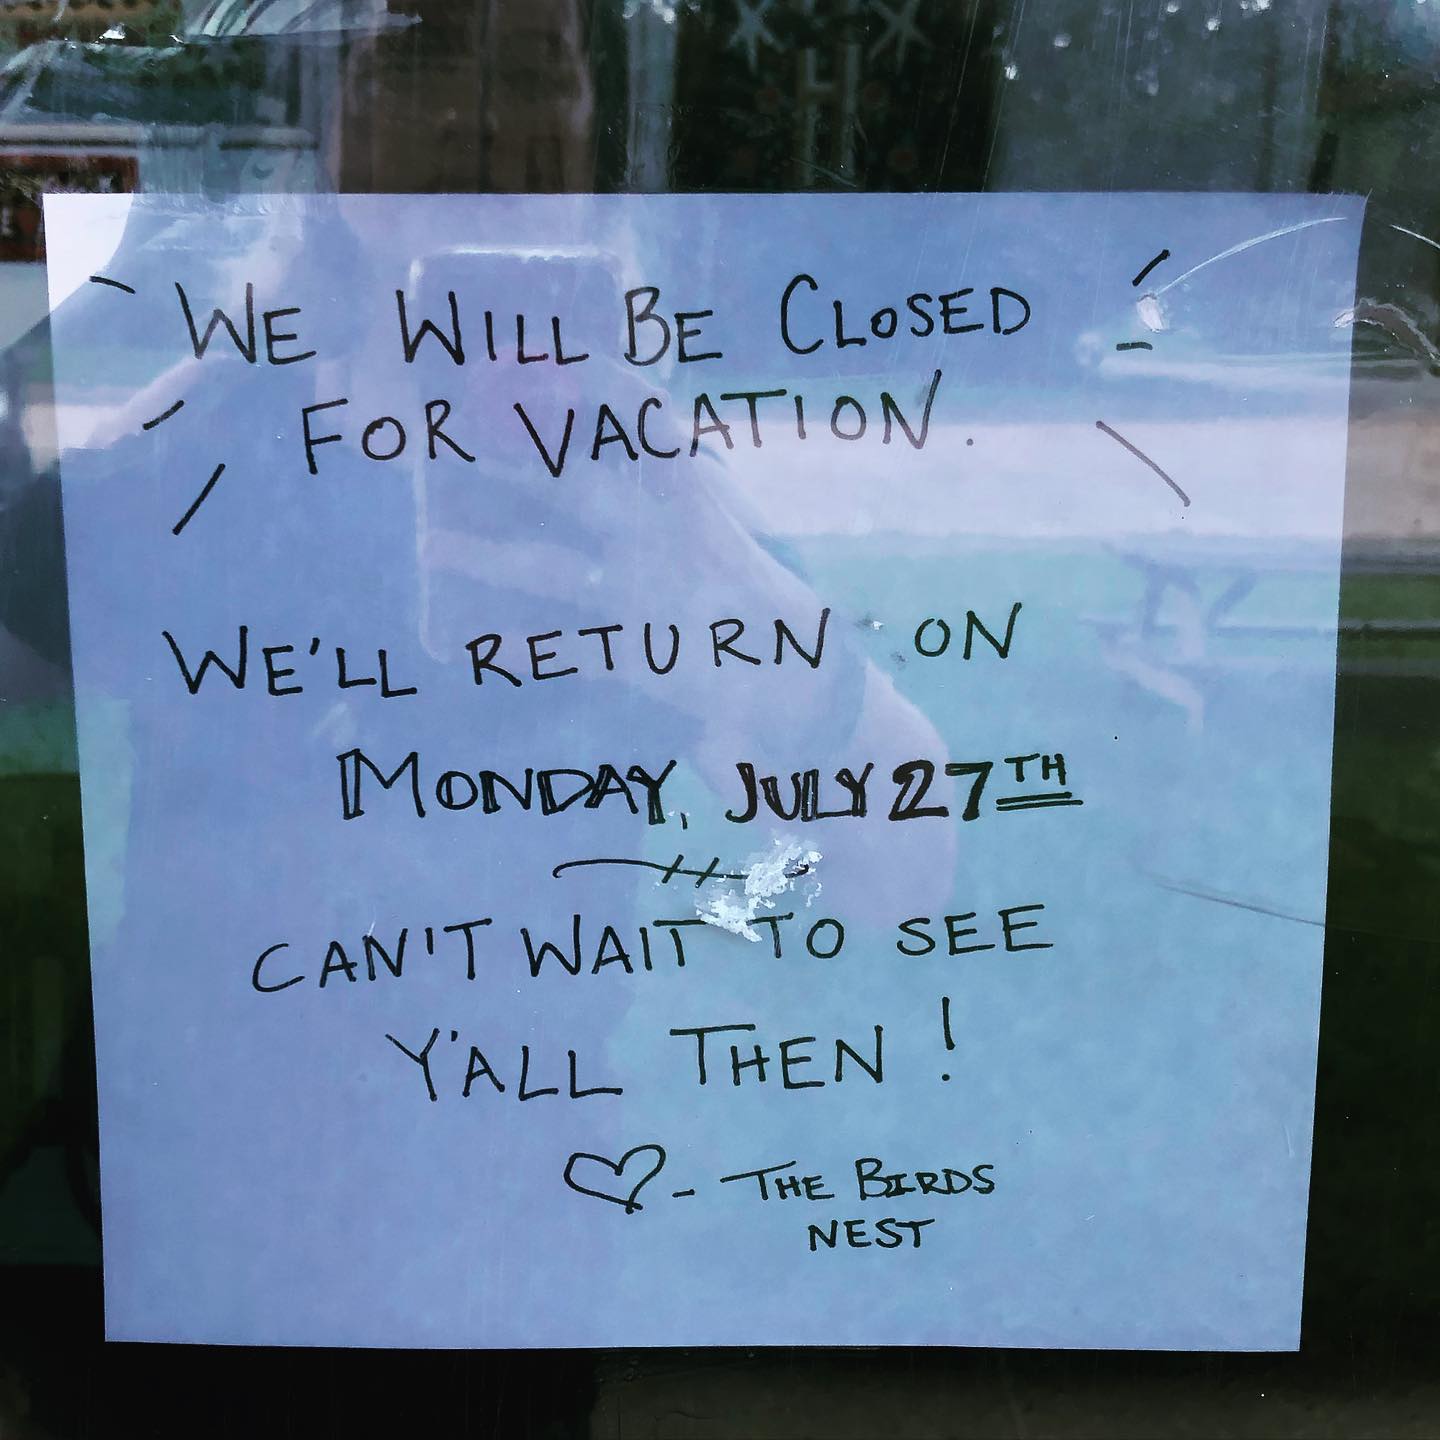 WE WILL BE CLOSED
FOR VACATION.
WE'LL RETURN ON
MONDAY, JULY 27TH
CAN'T WAIT TO SEE
Y'ALL THEN!
♡ - THE BIRDS
NEST